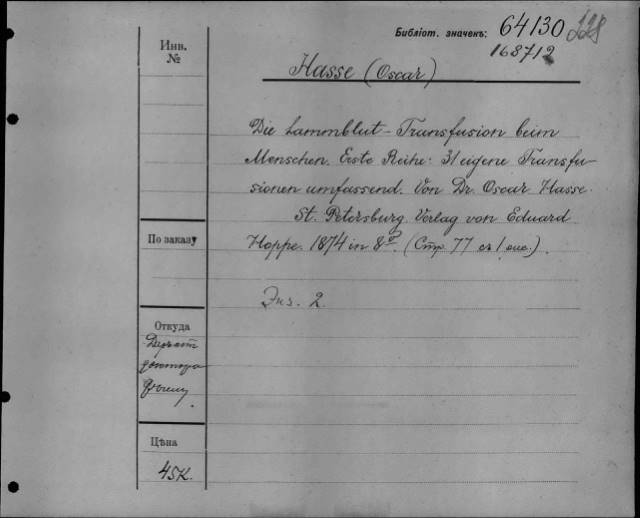 Библіот. значекъ: 64130 228
168712
Инв.
№
Hasse (Oscar)
Die Lammblut-Transfusion beim
Menschen. Erste Reihe: 31 eigene Transfu-
sionen umfassend. Von Dr. Oscar Hasse.
St. Petersburg. Verlag von Eduard
Hoppe. 1874 in 8º. (Стр. 77 съ 1 рис.).
По заказу
Экз. 2.
Откуда
доктора
Цѣна
45к.